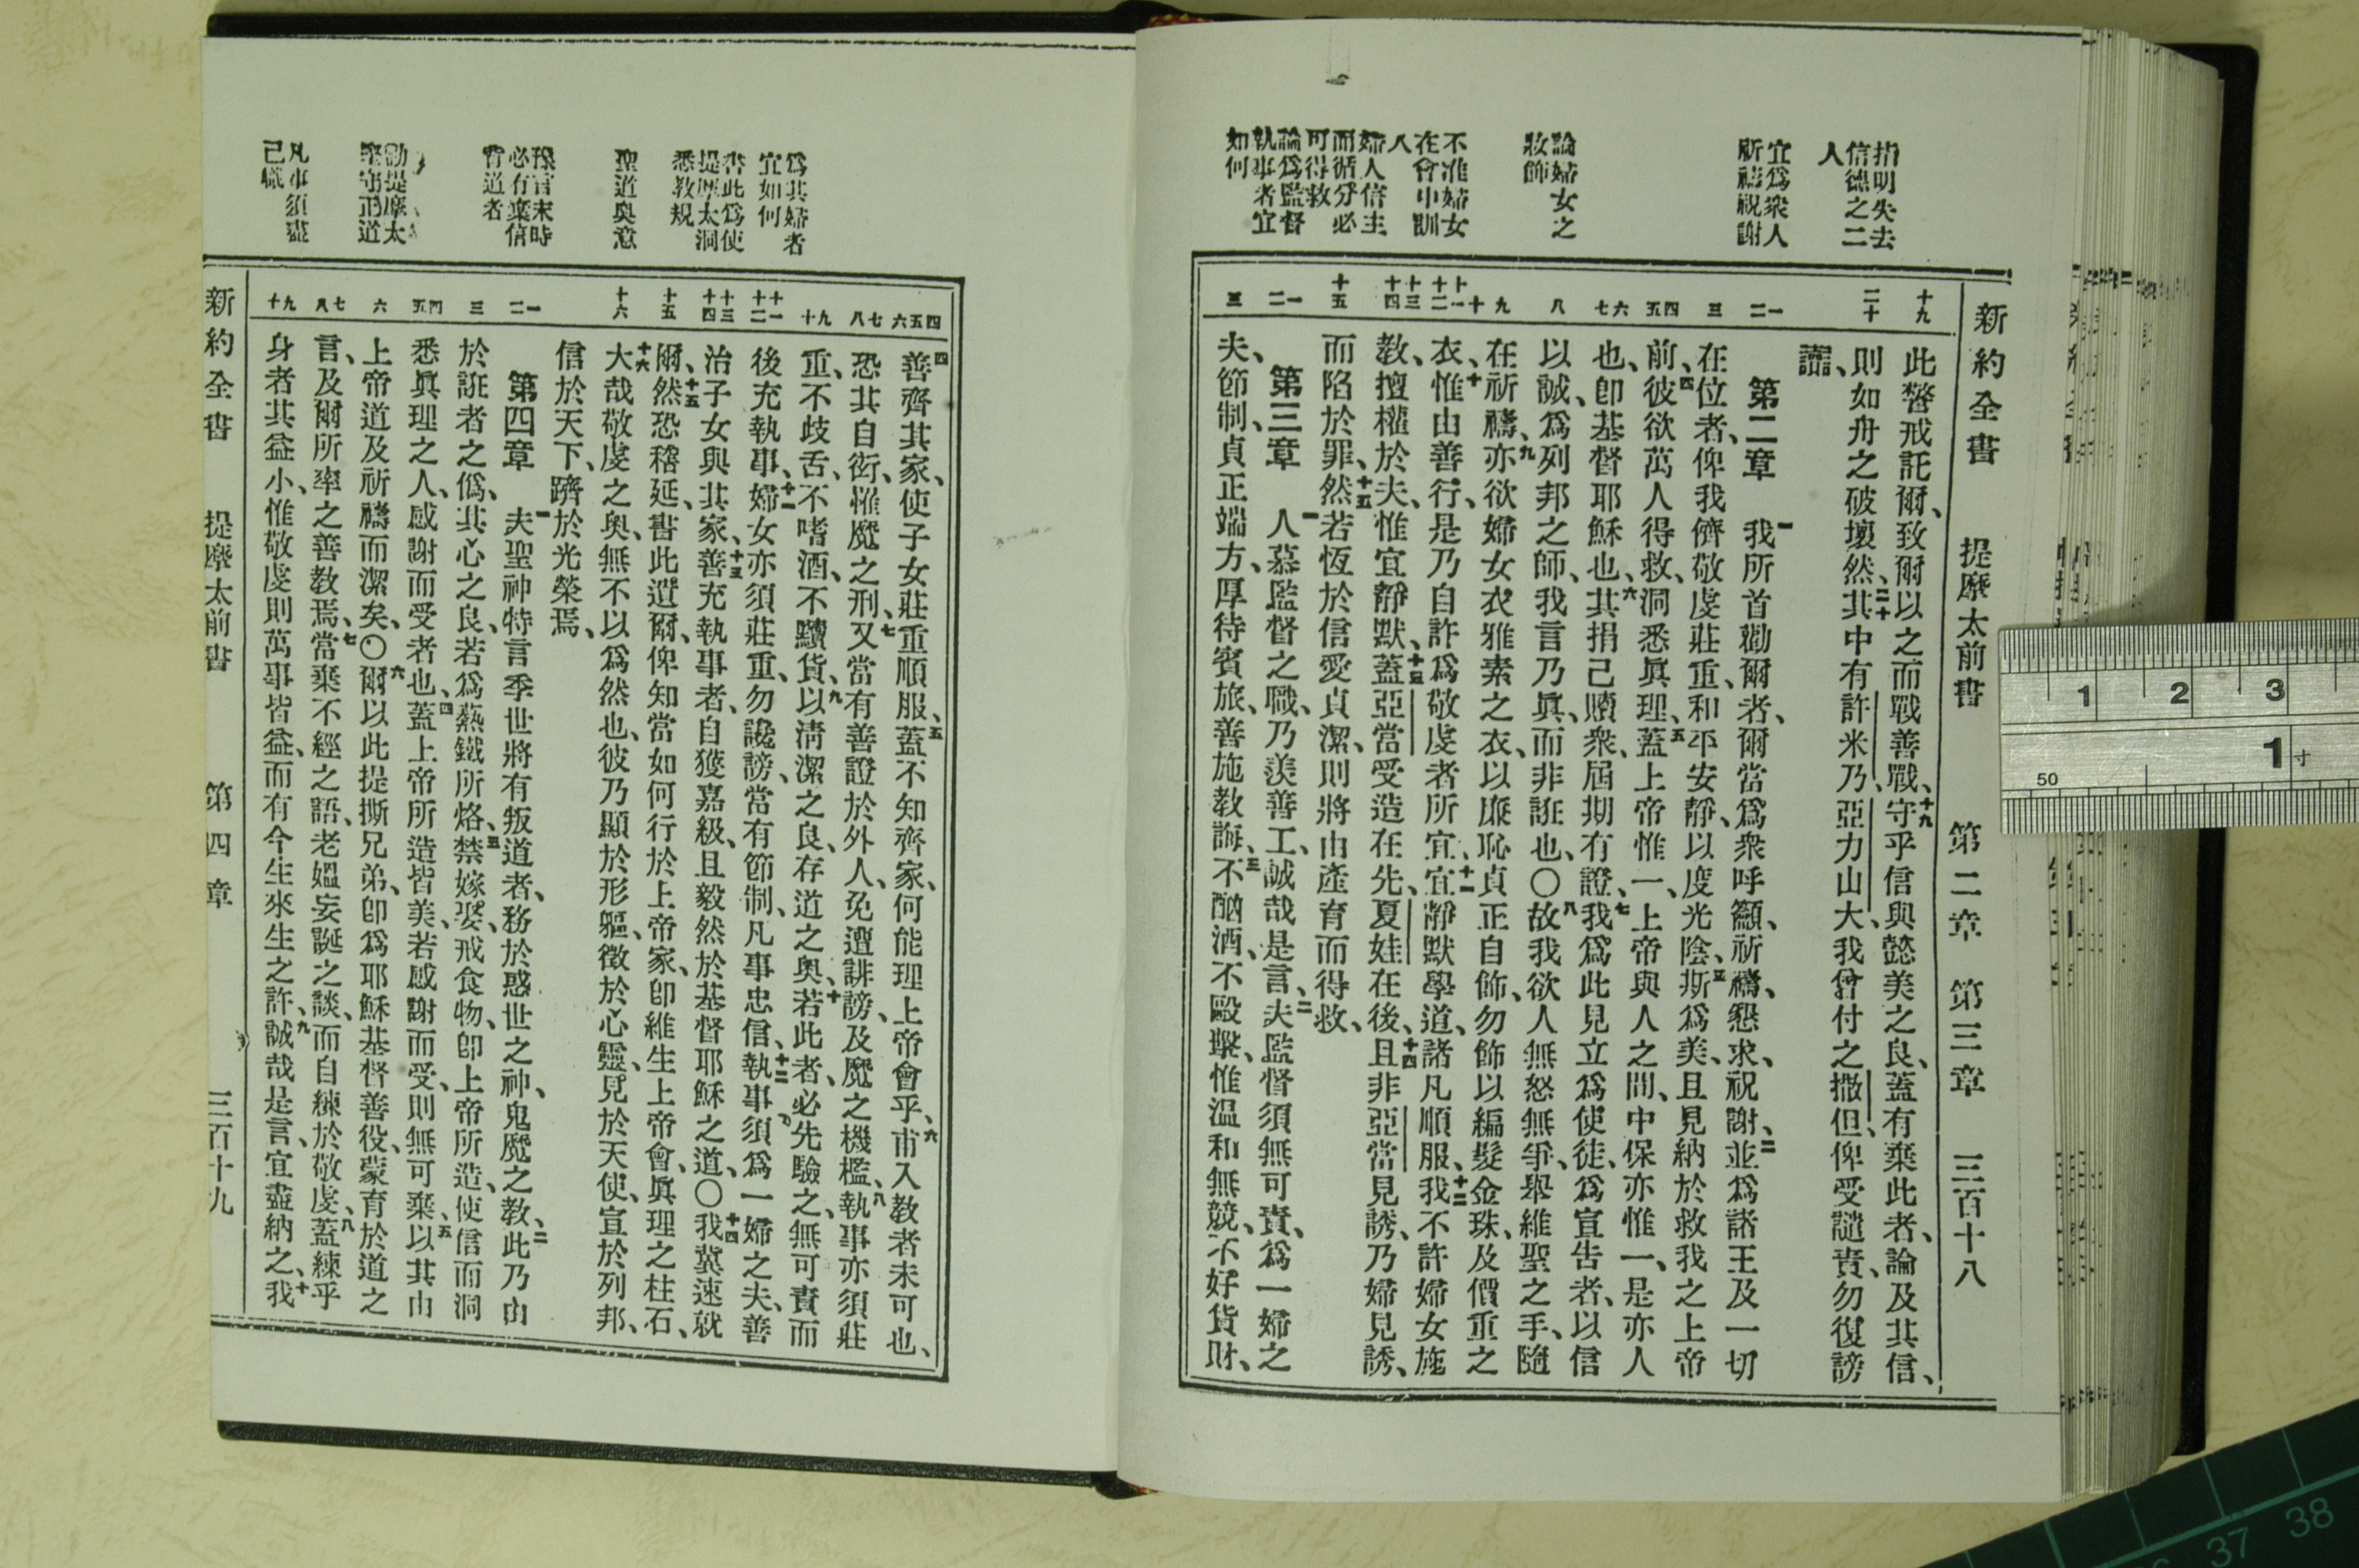 新約全書 提摩太前書 第二章 第三章 三百十八
指明失去
信德之二
人
宜爲衆人
所禱祝謝
論婦女之
妝飾
不准婦女
在會中訓
人
婦人信主
而循分必
可得救
論爲監督
執事者宜
如何
十九
二十
一二
三
四五
六七
八
九
十
十一十二
十三十四
十五
一二
三
此警戒託爾、致爾以之而戰善戰、十九守乎信與懿美之良、蓋有棄此者、論及其信、
則如舟之破壞然、二十其中有許米乃、亞力山大、我曾付之撒但、俾受譴責、勿復謗
讟、
第二章 一我所首勸爾者、爾當爲衆呼籲、祈禱、懇求、祝謝、二並爲諸王及一切
在位者、俾我儕敬虔莊重、和平安靜、以度光陰、三斯爲美、且見納於救我之上帝
前、四彼欲萬人得救、洞悉眞理、五蓋上帝惟一、上帝與人之間、中保亦惟一、是亦人
也、卽基督耶穌也、六其捐己贖衆、屆期有證、七我爲此見立爲使徒、爲宣告者、以信
以誠、爲列邦之師、我言乃眞、而非誑也、〇八故我欲人無怒無爭、舉維聖之手、隨
在祈禱、九亦欲婦女衣雅素之衣、以廉恥貞正自飾、勿飾以編髮金珠、及價重之
衣、十惟由善行、是乃自許爲敬虔者所宜、十一宜靜默學道、諸凡順服、十二我不許婦女施
教、擅權於夫、惟宜靜默、十三蓋亞當受造在先、夏娃在後、十四且非亞當見誘、乃婦見誘、
而陷於罪、十五然若恆於信愛貞潔、則將由產育而得救、
第三章 一人慕監督之職、乃羨善工、誠哉是言、二夫監督須無可責、爲一婦之
夫、節制、貞正端方、厚待賓旅、善施教誨、三不酗酒、不毆擊、惟温和無競、不好貨財、
爲其婦者
宜如何
書此爲使
提摩太洞
悉敎規
聖道奥意
豫言末時
必有棄信
背道者
勸提摩太
堅守正道
凡事須盡
己職
四五六
七八
九十
十一十二
十三十四
十五
十六
一二
三
四五
六
七八
九十
四善齊其家、使子女莊重順服、五蓋不知齊家、何能理上帝會乎、六甫入教者未可也、
恐其自衒、罹魔之刑、七又當有善證於外人、免遭誹謗、及魔之機檻、八執事亦須莊
重、不歧舌、不嗜酒、不黷貨、九以淸潔之良、存道之奧、十若此者、必先驗之、無可責而
後充執事、十一婦女亦須莊重、勿讒謗、當有節制、凡事忠信、十二執事須爲一婦之夫、善
治子女與其家、十三善充執事者、自獲嘉級、且毅然於基督耶穌之道、〇十四我冀速就
爾、十五然恐稽延、書此遺爾、俾知當如何行於上帝家、卽維生上帝會、眞理之柱石、
十六大哉敬虔之奥、無不以爲然也、彼乃顯於形軀、徵於心靈、見於天使、宣於列邦、
信於天下、躋於光榮焉、
第四章 一夫聖神特言季世將有叛道者、務於惑世之神、鬼魔之教、二此乃由
於誑者之僞、其心之良、若爲熱鐵所烙、三禁嫁娶、戒食物、卽上帝所造、使信而洞
悉眞理之人、感謝而受者也、四蓋上帝所造皆美、若感謝而受、則無可棄、五以其由
上帝道及祈禱而潔矣、〇六爾以此提撕兄弟、卽爲耶穌基督善役、蒙育於道之
言、及爾所率之善教焉、七當棄不經之語、老媼妄誕之談、而自練於敬虔、八蓋練乎
身者其益小、惟敬虔則萬事皆益、而有今生來生之許、九誠哉是言、宜盡納之、十我
新約全書 提摩太前書 第四章 三百十九
1 2 3
50 1寸
37 38